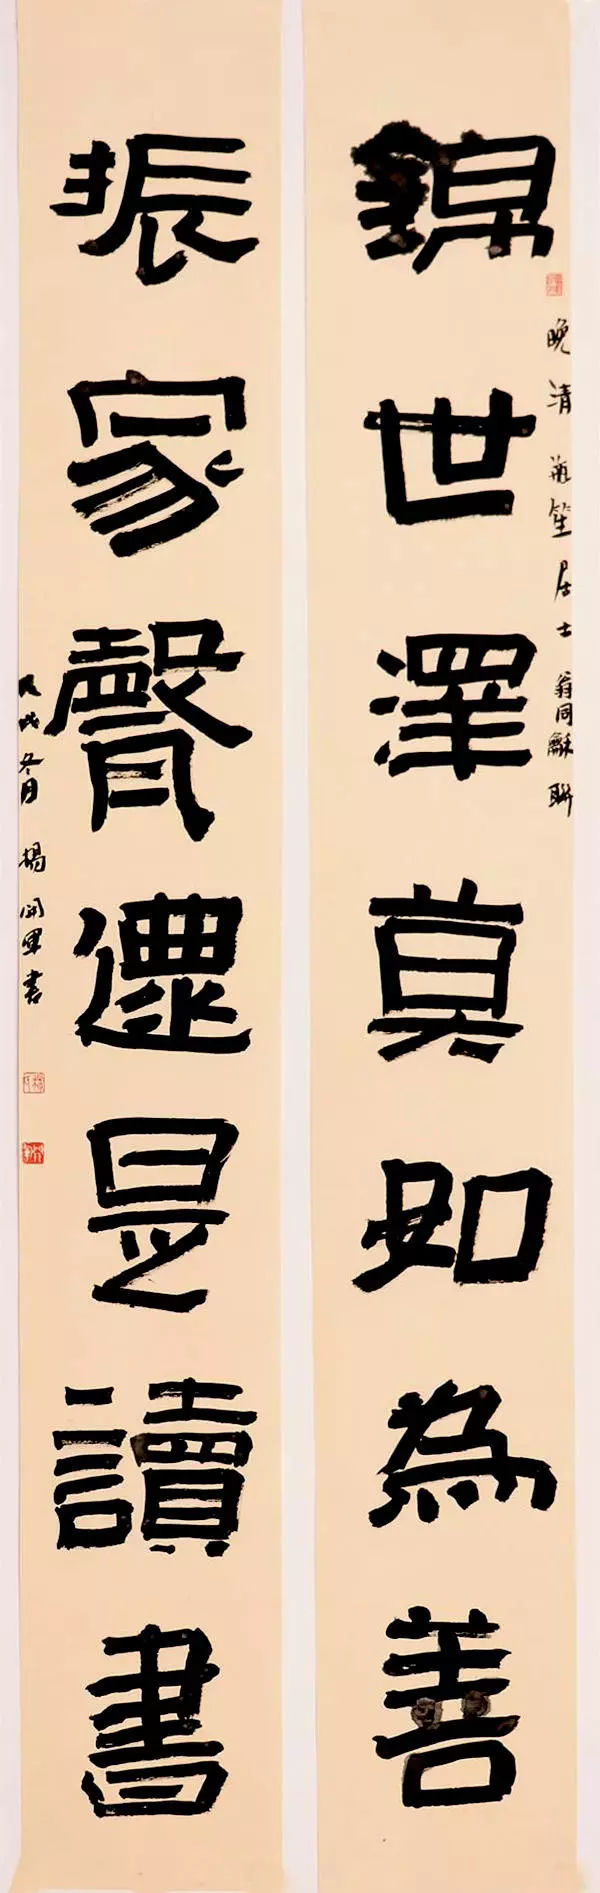 錦世澤莫如為善
晚清瓶笙居士翁同龢聯
振家聲還是讀書
戊戌冬月楊開書